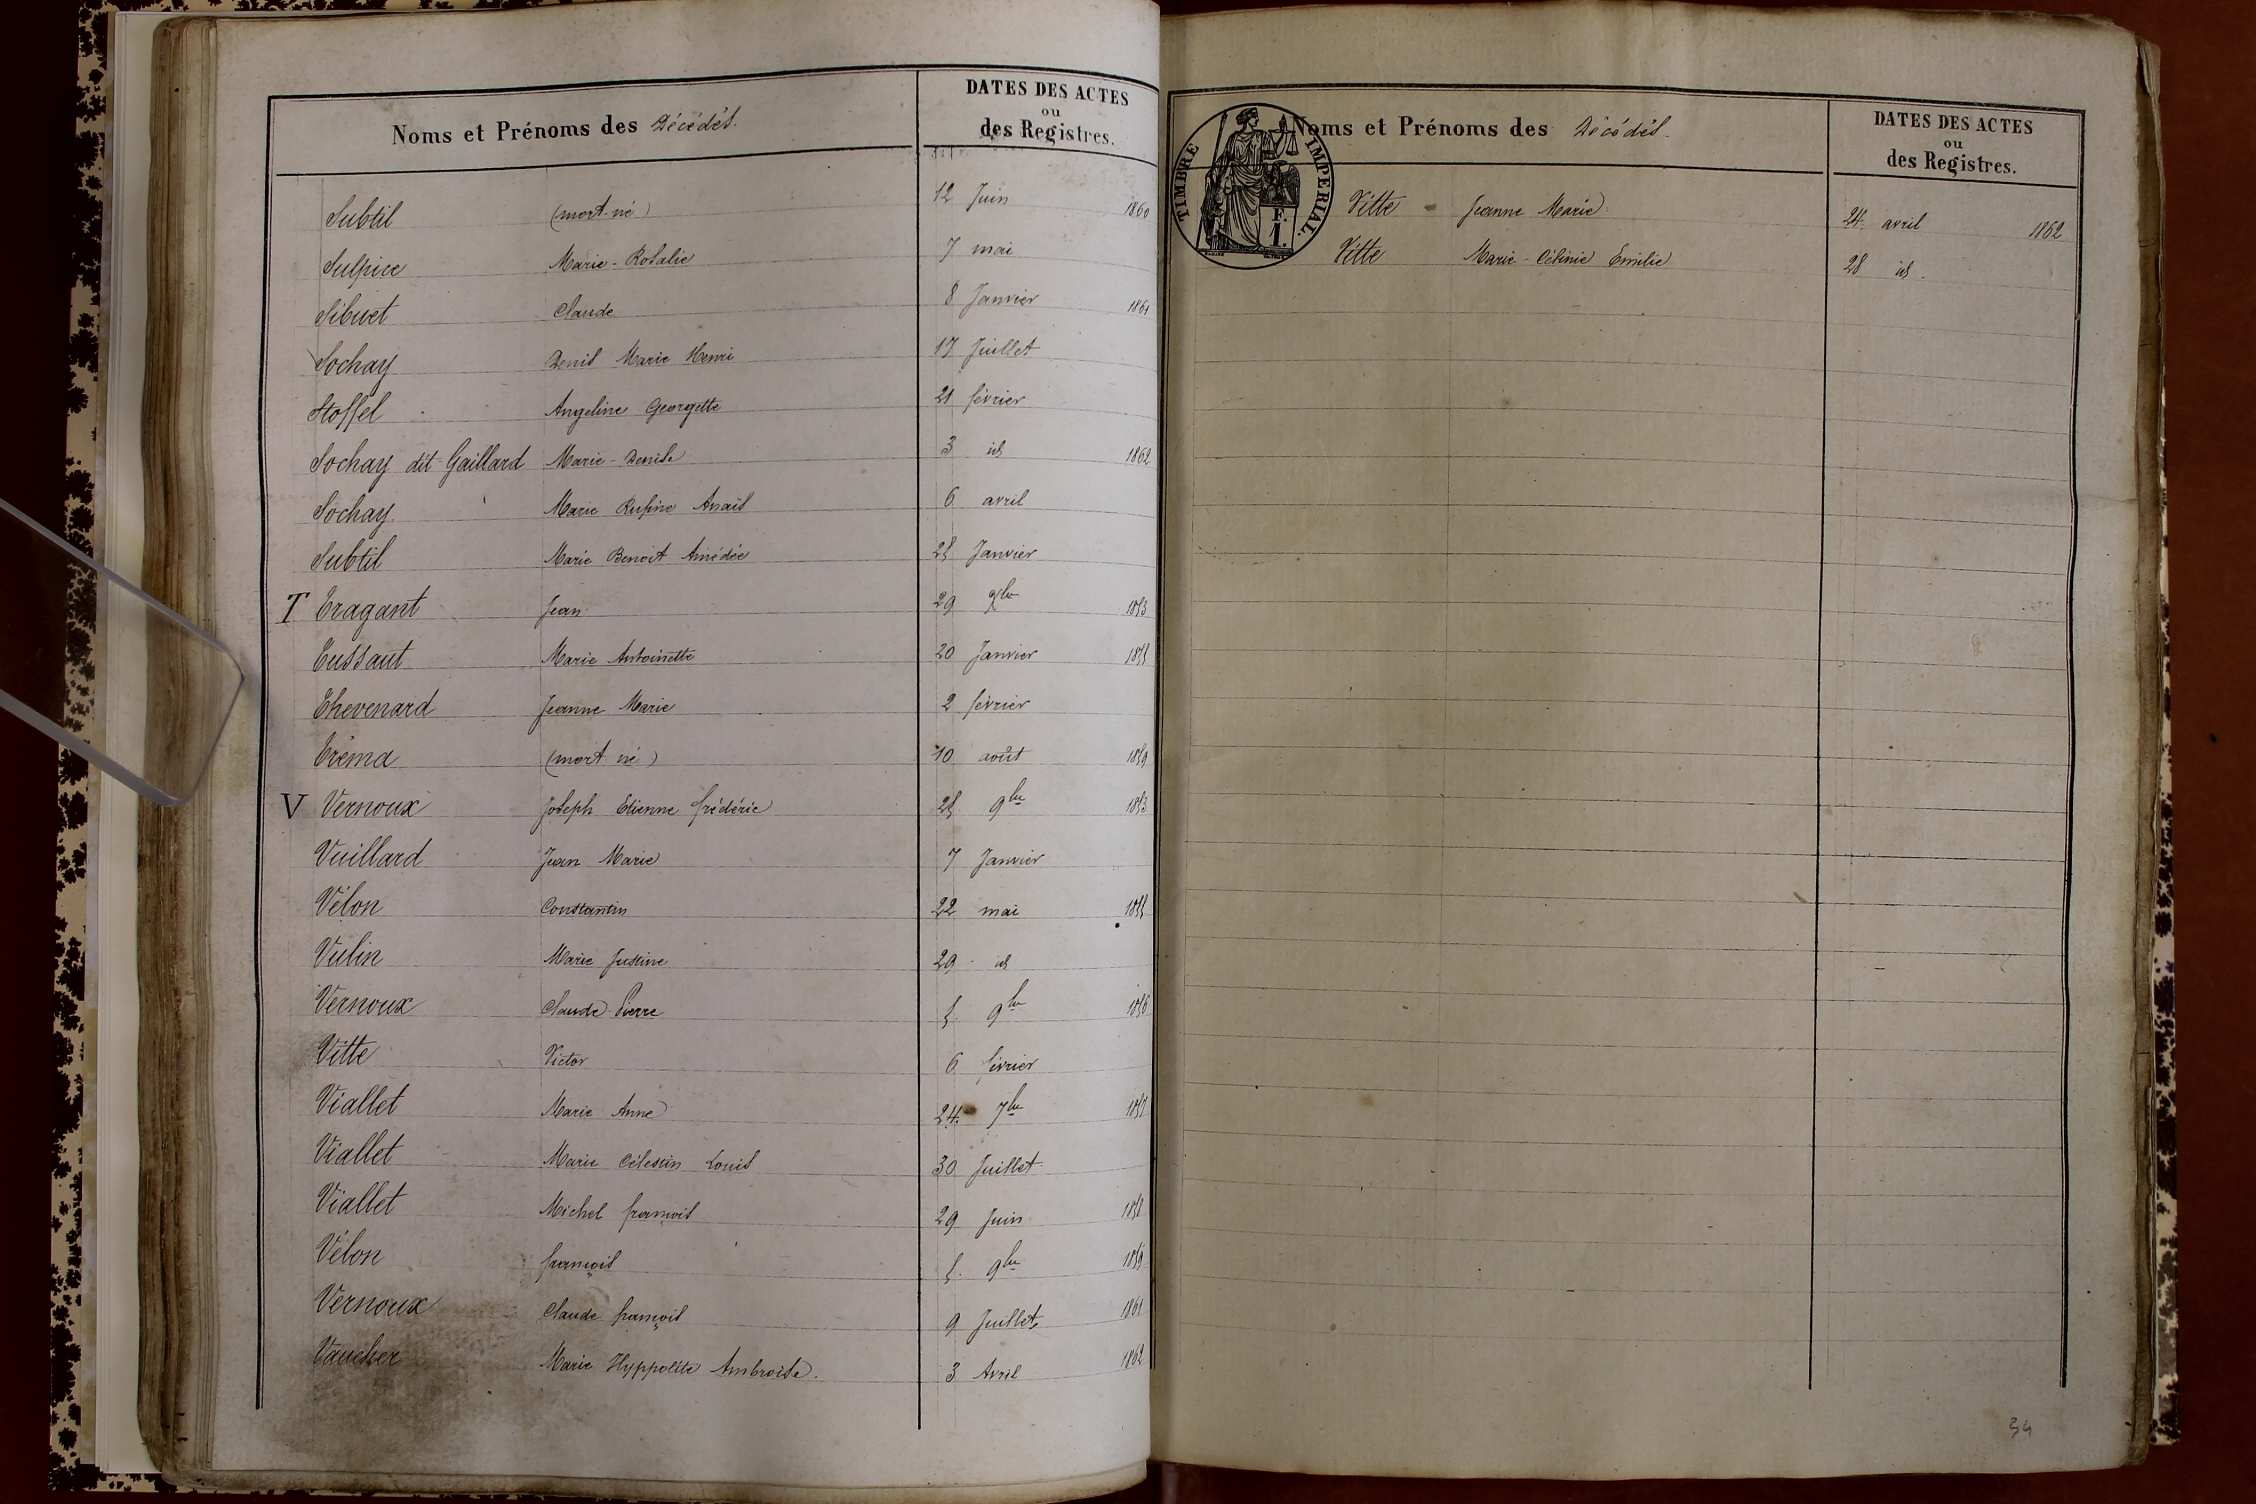 Noms et Prénoms des Décédés.
DATES DES ACTES
ou
des Registres.
Subtil (mort-né) 12 Juin 1860
Sulpice Marie-Rosalie 7 mai
Sibuet Claude 8 Janvier 1861
Sochay Denis Marie Henri 17 Juillet
Stoffel Angeline Georgette 21 février
Sochay dit Gaillard Marie-Denise 3 id 1862
Sochay Marie Rufine Anaïs 6 avril
Subtil Marie Benoit Amédée 25 Janvier
T Tragant Jean 29 1853
Tussaut Marie Antoinette 20 Janvier 1855
Thevenard Jeanne Marie 2 février
Tréma (mort né) 10 août 1859
V Vernoux Joseph Etienne frédéric 25 9bre 1853
Vuillard Jean Marie 7 Janvier
Vélon Constantin 22 mai 1855
Vulin Marie Justine 29 id
Vernoux Claude-Pierre 5 9bre 1856
Vitte Victor 6 février
Viallet Marie Anne 24 7bre 1857
Viallet Marie Célestin Louis 30 Juillet
Viallet Michel françois 29 Juin 1858
Vélon françois 5 9bre 1859
Vernoux Claude françois 9 Juillet 1861
Vaucher Marie Hyppolite Ambroise. 3 Avril 1862
TIMBRE IMPERIAL.
F.
1.
Noms et Prénoms des Décédés.
DATES DES ACTES
ou
des Registres.
Vitte Jeanne Marie 24 avril 1862
Vitte Marie-Célinie Emilie 28 id.
34